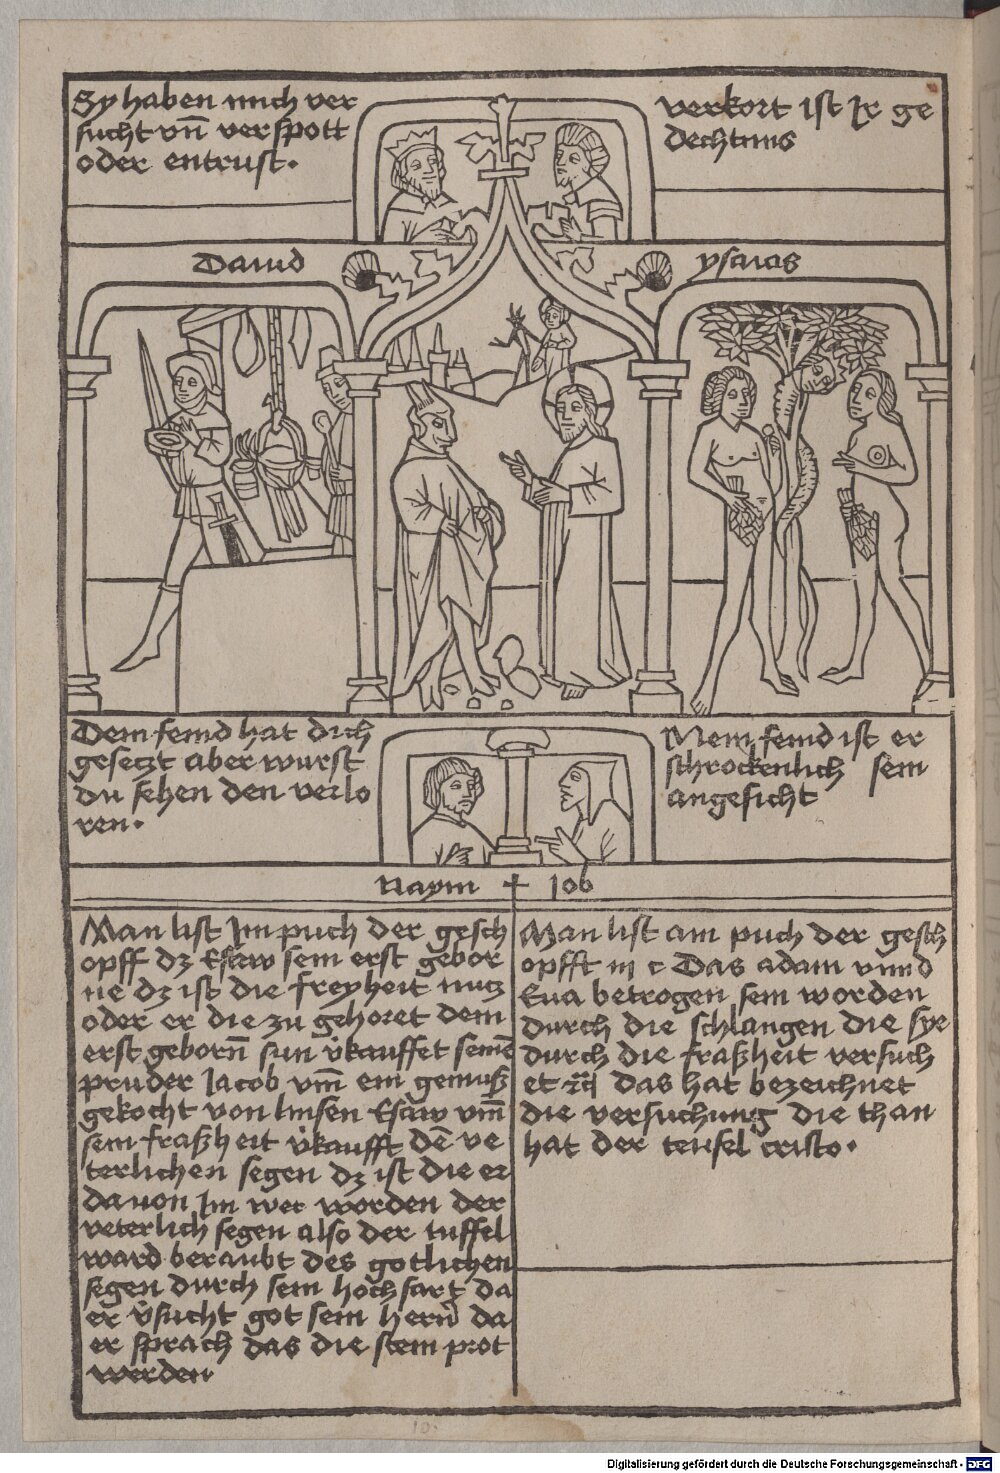 Sy haben mich ver
sucht vn̄ verspott
oder entrust.
verkort ist Ir ge
dechtnus
Dauid
ysaias
Dein feind hat dich
gesetzt aber wurst
du sehen den verlo
ren.
Mein feind ist er
schrockenlich sein
angesicht
Naym + Job
Man list Im puch der gesch
opff dz Esaw sein erst gebor
ne dz ist die freyheit nutz
oder er die zu gehoret dem
erst geborn̄ sun v̓kauffet seinē
pruder Jacob vm̄ ein gemuß
gekocht von linsen Esaw vm̄
sein fraßheit v̓kaufft dē ve
terlichen segen dz ist die er
dauon Im wer worden der
veterlich segen also der tuffel
ward beraubt des gotlichen
segen durch sein hochfart da
er v̓sucht got sein hern̄ da
er sprach das die stein prot
werden
Man list am puch der gesch
opfft iij c Das adam vnnd
Eua betrogen sein worden
durch die schlangen die sye
durch die fraßheit versuch
et das hat bezeichnet
die versuchung die than
hat der teufel cristo.
10.
Digitalisierung gefördert durch die Deutsche Forschungsgemeinschaft - DFG